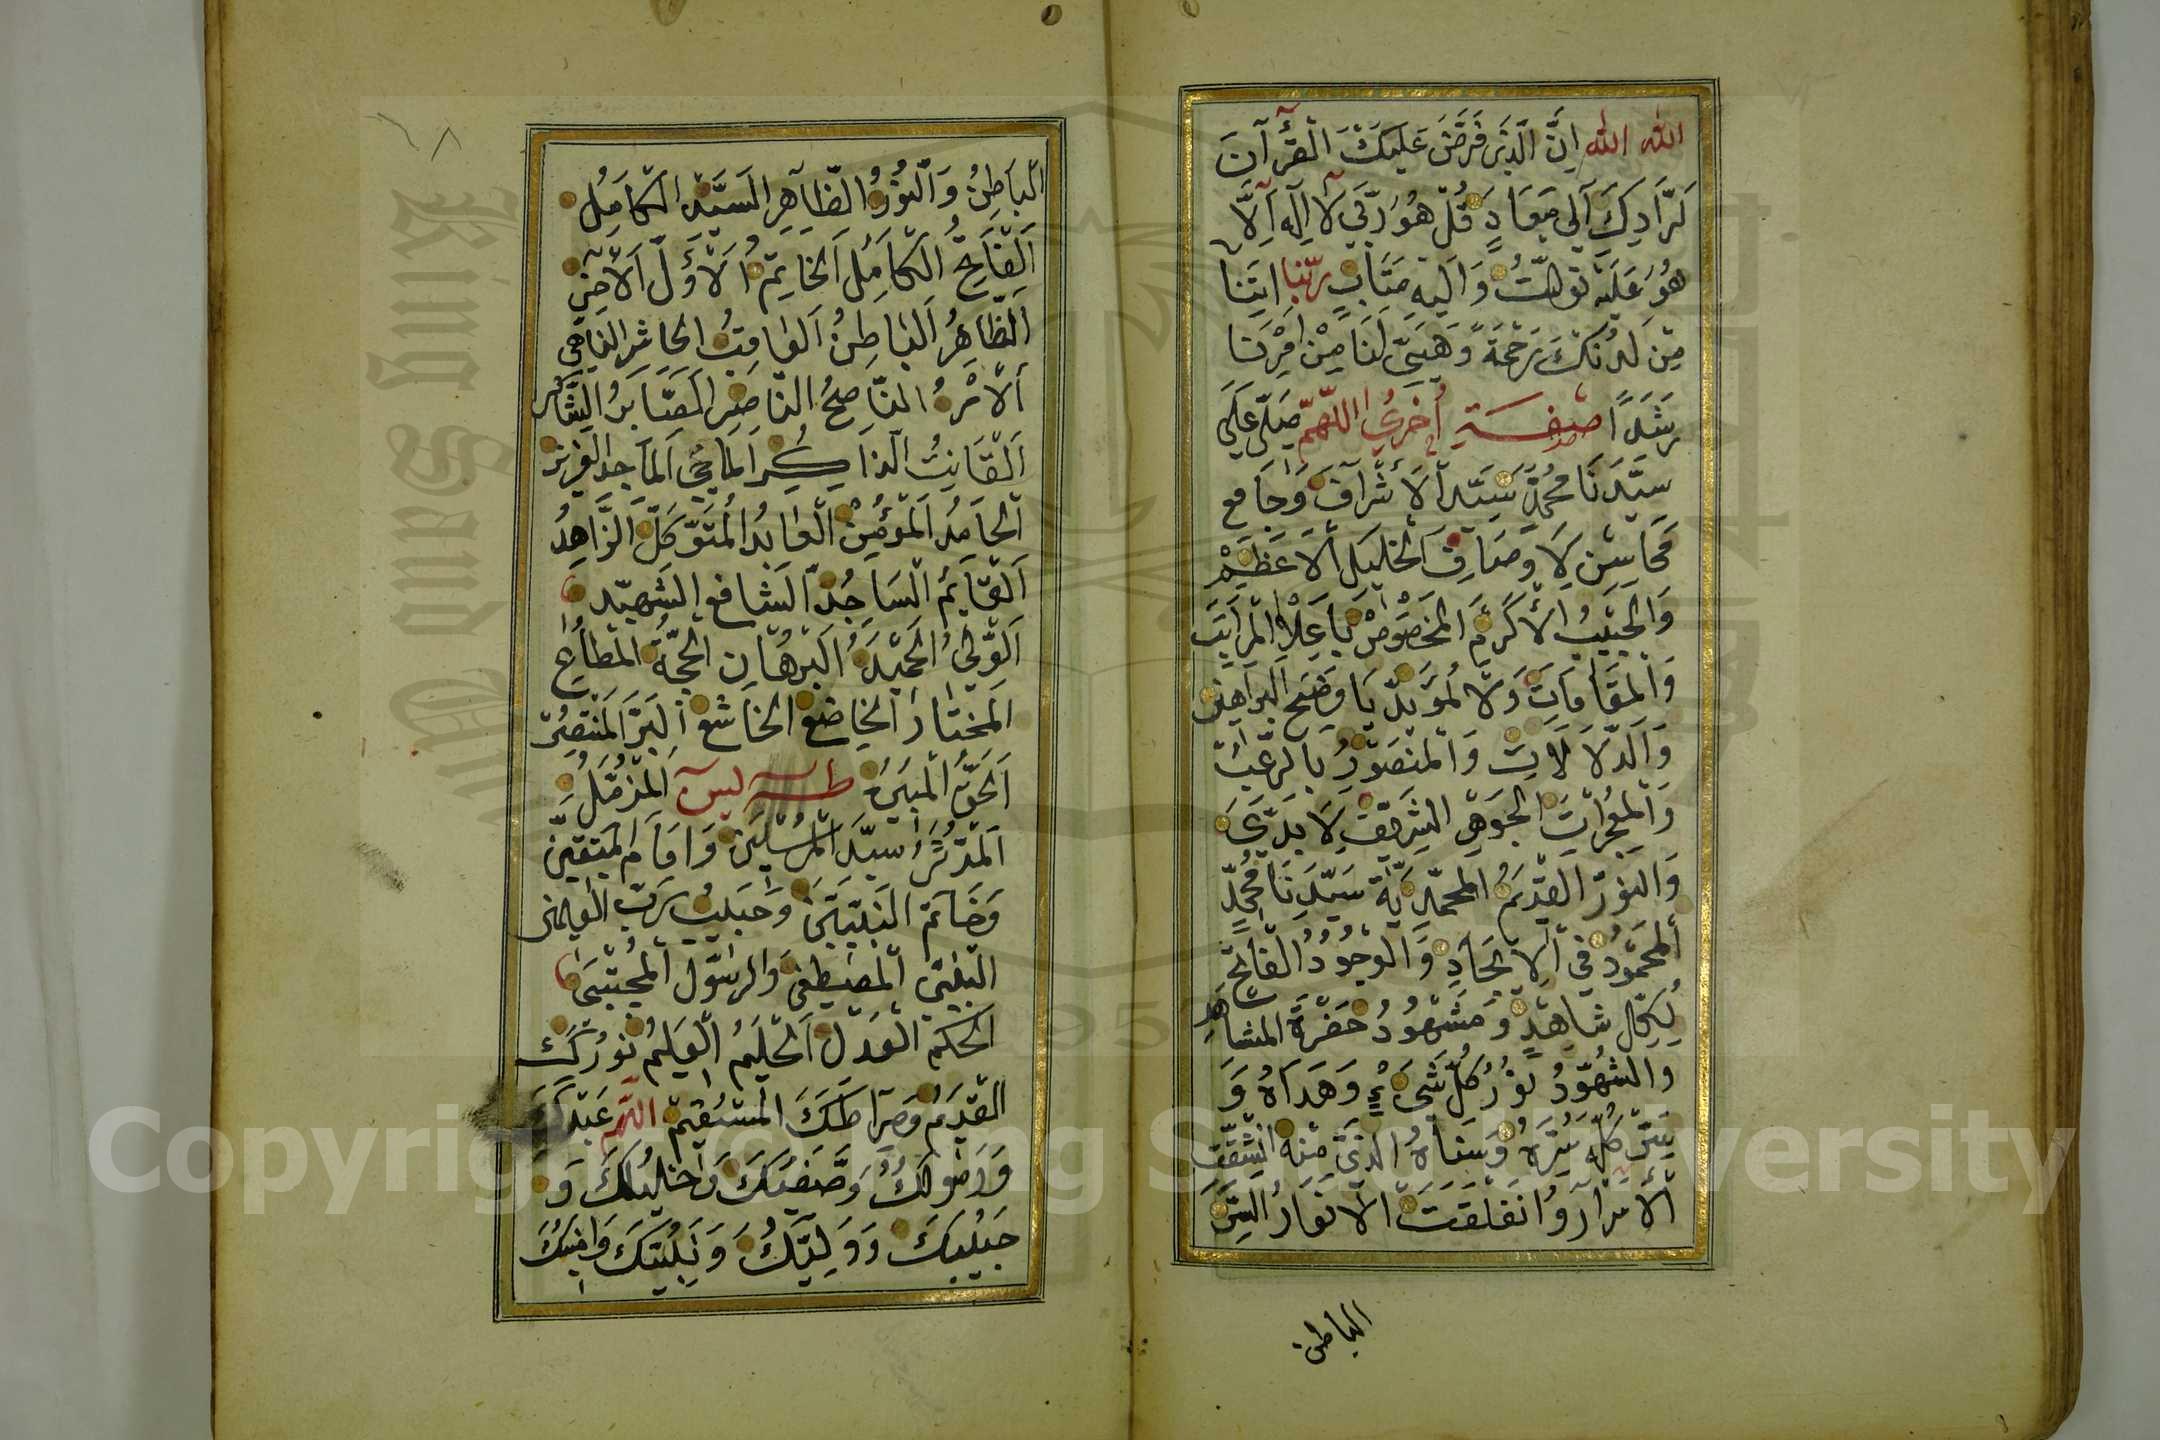 الله الله اِنَّ الَّذِي فَرَضَ عَلَيْكَ الْقُرْآنَ
لَرَّادُكَ اِلَى مَعَادٍ قُلْ هُوَ رَبِّي لَا اِلَهَ اِلَّا
هُوَ عَلَيْهِ تَوَكَّلْتُ وَاِلَيْهِ مَتَابِ رَبَّنَا اتِنَا
مِنْ لَدُنْكَ رَحْمَةً وَهَيِّئْ لَنَا مِنْ اَمْرِنَا
رَشَدًا صيغة اُخرى اللّهمّ صَلِّ عَلَى
سَيِّدِنَا مُحَمَّدٍ سَيِّدِ الْاَشْرَافِ وَجَامِعِ
مَحَاسِنِ الْخَلِيلِ الْاَعْظَمِ
وَالْحَبِيبِ الْاَكْرَمِ الْمَخْصُوصْ بَاعْلَا الْمَرَاتِبَ
وَالْمَقَامَاتِ وَلَا لْمُؤَيَّدْ بَاوضَحِ الْبَرَاهِينِ
وَالدَّلَالَاتِ وَالْمَنْصُورُ بِالرُّعْبِ
وَالْمُعْجِزَاتِ الْجَوهَرِ الشَّرِيفِ لَا بَدِيَّ
وَالنُّورْ الْقَدِيمُ الْمُحَمَّدِيَّةِ سَيِّدِنَا مُحَمَّدٍ
الْمَحْمُودُ فِي الْاِيجَادِ وَالْوُجُودُ الْفَاتِحْ
لِكُلِّ شَاهِدٍ وَمَشْهُودُ حَضْرَةِ الْمشَاهِد
وَالشُّهُودُ نُورُ كُلِّ شَيْءٍ وَهَدَاهُ وَ
سِرّ كُلِّ سِرِّهُ وَسَنَاهُ الَّذِي مِنْهُ انْشَقَّتِ
الْاَسْرَارُ وَانْفَلَقَتْ الْاَنْوَارُ السِّرّ
الباطن
٦٨
الْبَاطِنُ وَالنُّوْرُ الظَّاهِرِ السَيِّدِ الْكَامِلُ
اَلْفَاتِحُ الْكَامِلُ الْخَاتِمُ الْاَوَّلُ الْاَخِرُ
اَلظَّاهِرُ الْبَاطِنُ الْعَاقِبُ الْحَاشِرُ النَّاهِي
الْاَمْرُ النَّاصِحُ النَّاصِر الصَّابِرُ الشَّاكِرُ
اَلْقَانِتُ الذَاكِرُ الْمَاحِي الْمَاجِدُ الْعَزِيز
الْحَامِدُ الْمَؤْمِنْ الْعَابِدُ الْمُتَوَكِّلُ الزَّاهِدُ
اَلْقَايِمُ السَّاجِدُ الشَافِعِ الشَّهِيدِ
اَلْوَلِيُّ الْحَمِيدُ الْبُرْهَانِ الْحُجَّةِ الْمطَاعِ
الْمختَارُ الْخَاضِعْ الْخَاشِعْ الْبَرُّ الْمَنْتَصِر
اَلْحَقُّ الْمبِينُ طسه ليسٓ المزَّمِّلُ
الْمدَّثِّرُ سَيِّدِ الْمُرْسَلِينَ وَامَامِ الْمتَّقِينَ
وَخَاتَمِ النَّبِيِّينَ وَحَبيبِ رَبِّ العالمين
النَّبِيّ الْمصطفى وَالرسُوْلُ الْمُجْتَبَى
الْحَكَمُ الْعَدْلُ الْحَلِيمُ الْعَلِيمُ نُورُكَ
الْقَدِيمُ وَصِرَاطِكَ الْمُسْتَقِيمُ اللّهمّ عَبْدكَ
وَرَسُولِكَ وَصَفِيّكَ وَخَلِيلِكَ وَ
حَبِيبِكَ وَوَلِيِّكَ وَنَبِيِّكَ وَامِينِكَ
Copyright © King Saud University
King Saud University
1957